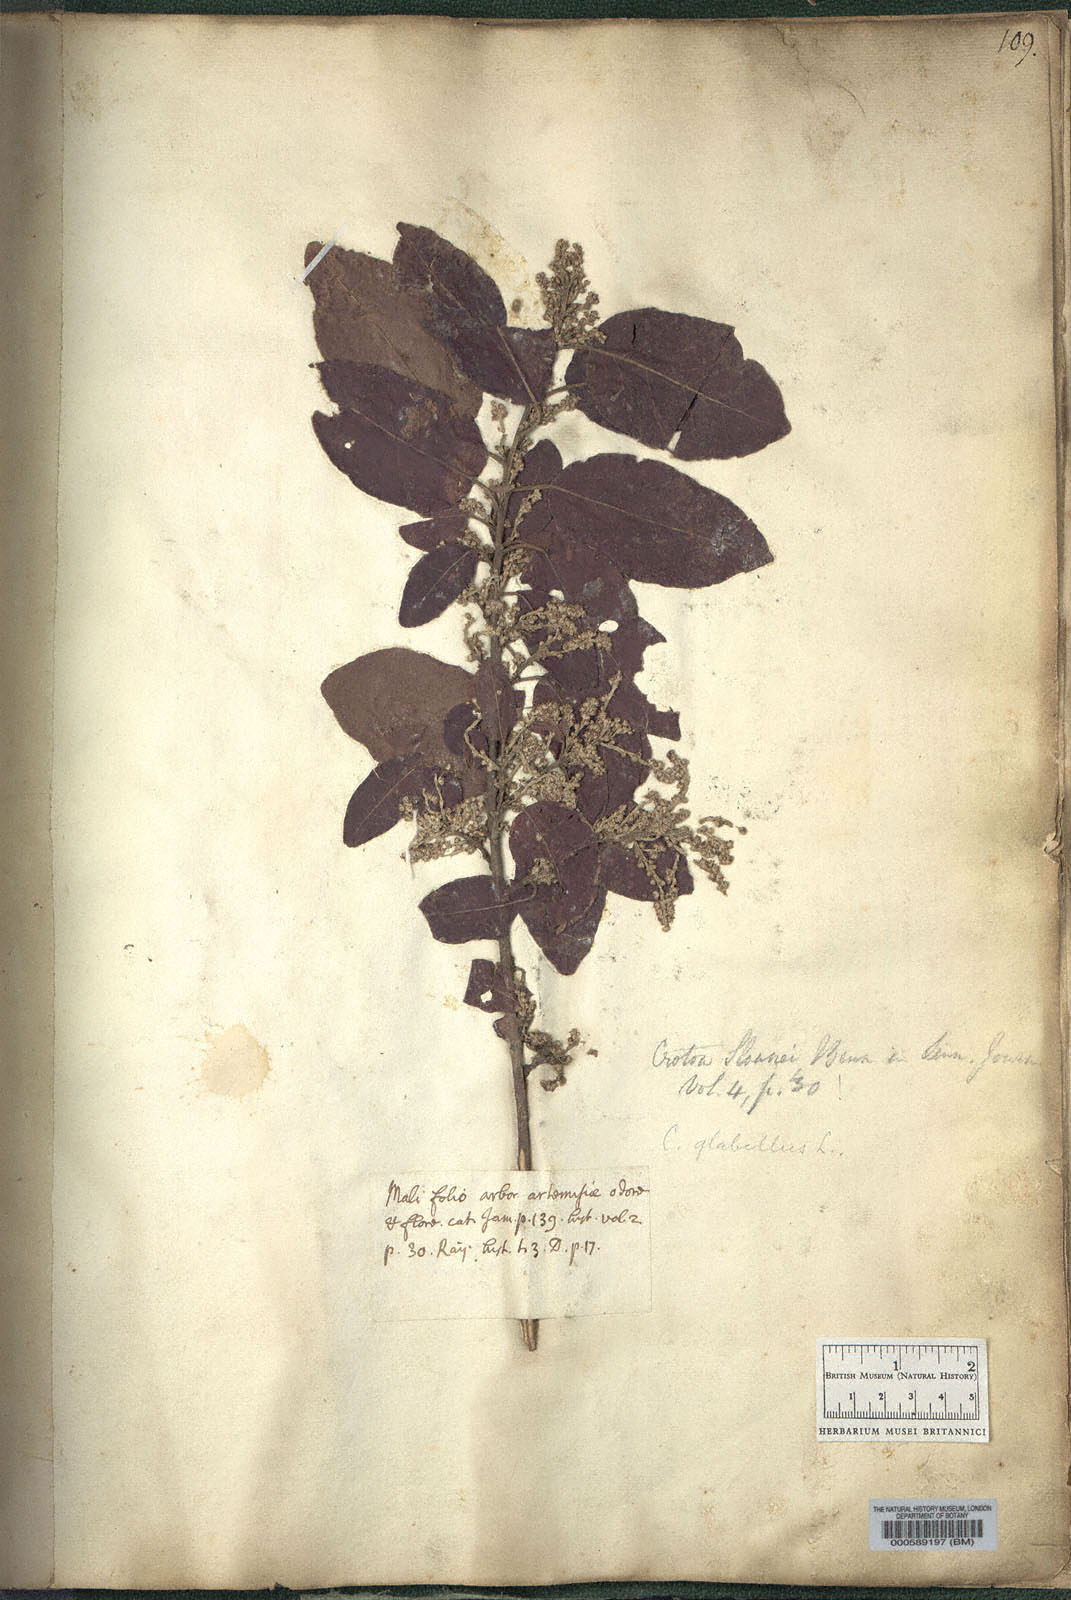 109.
Croton Sloanei Benn in Linn. Journ
Vol. 4, p. 30 !
C. glabellus L.
Mali folio arbor artemisiæ odore
& flore. cat. Jam. p. 139. hist. vol. 2
p. 30. Raij. hist. t. 3. D. p. 17.
1 2
BRITISH MUSEUM (NATURAL HISTORY)
1 2 3 4 5
HERBARIUM MUSEI BRITANNICI
THE NATURAL HISTORY MUSEUM, LONDON
DEPARTMENT OF BOTANY
000589197 (BM)